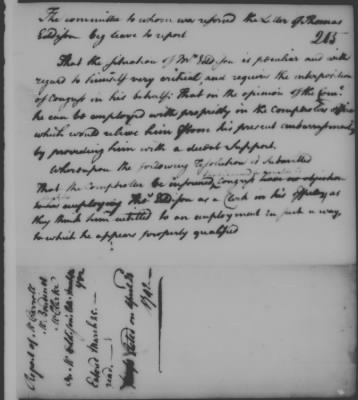 The committee to whom was referred the Letter of Thomas
Eddison beg leave to report
215
That the situation of Mr. Eddison is peculiar and with
regard to himself very critical, and requires the interposition
of Congress in his behalf; That in the opinion of the Comee.
he can be employed with propriety in the Comptrolers office
which would relieve him from his present embarrassments
by providing him with a decent Support.
Whereupon the following resolution is submitted
That the Comptroller be informed Congress have no objection
to his employing Thos. Eddison as a Clerk in his office, as
they think him entitled to an employment in such a way
to which he appears properly qualified
Report of Mr Carroll
Mr
Mr Clarke
on Mr Eddison's
Enterd March 30.
read.
on April
1782